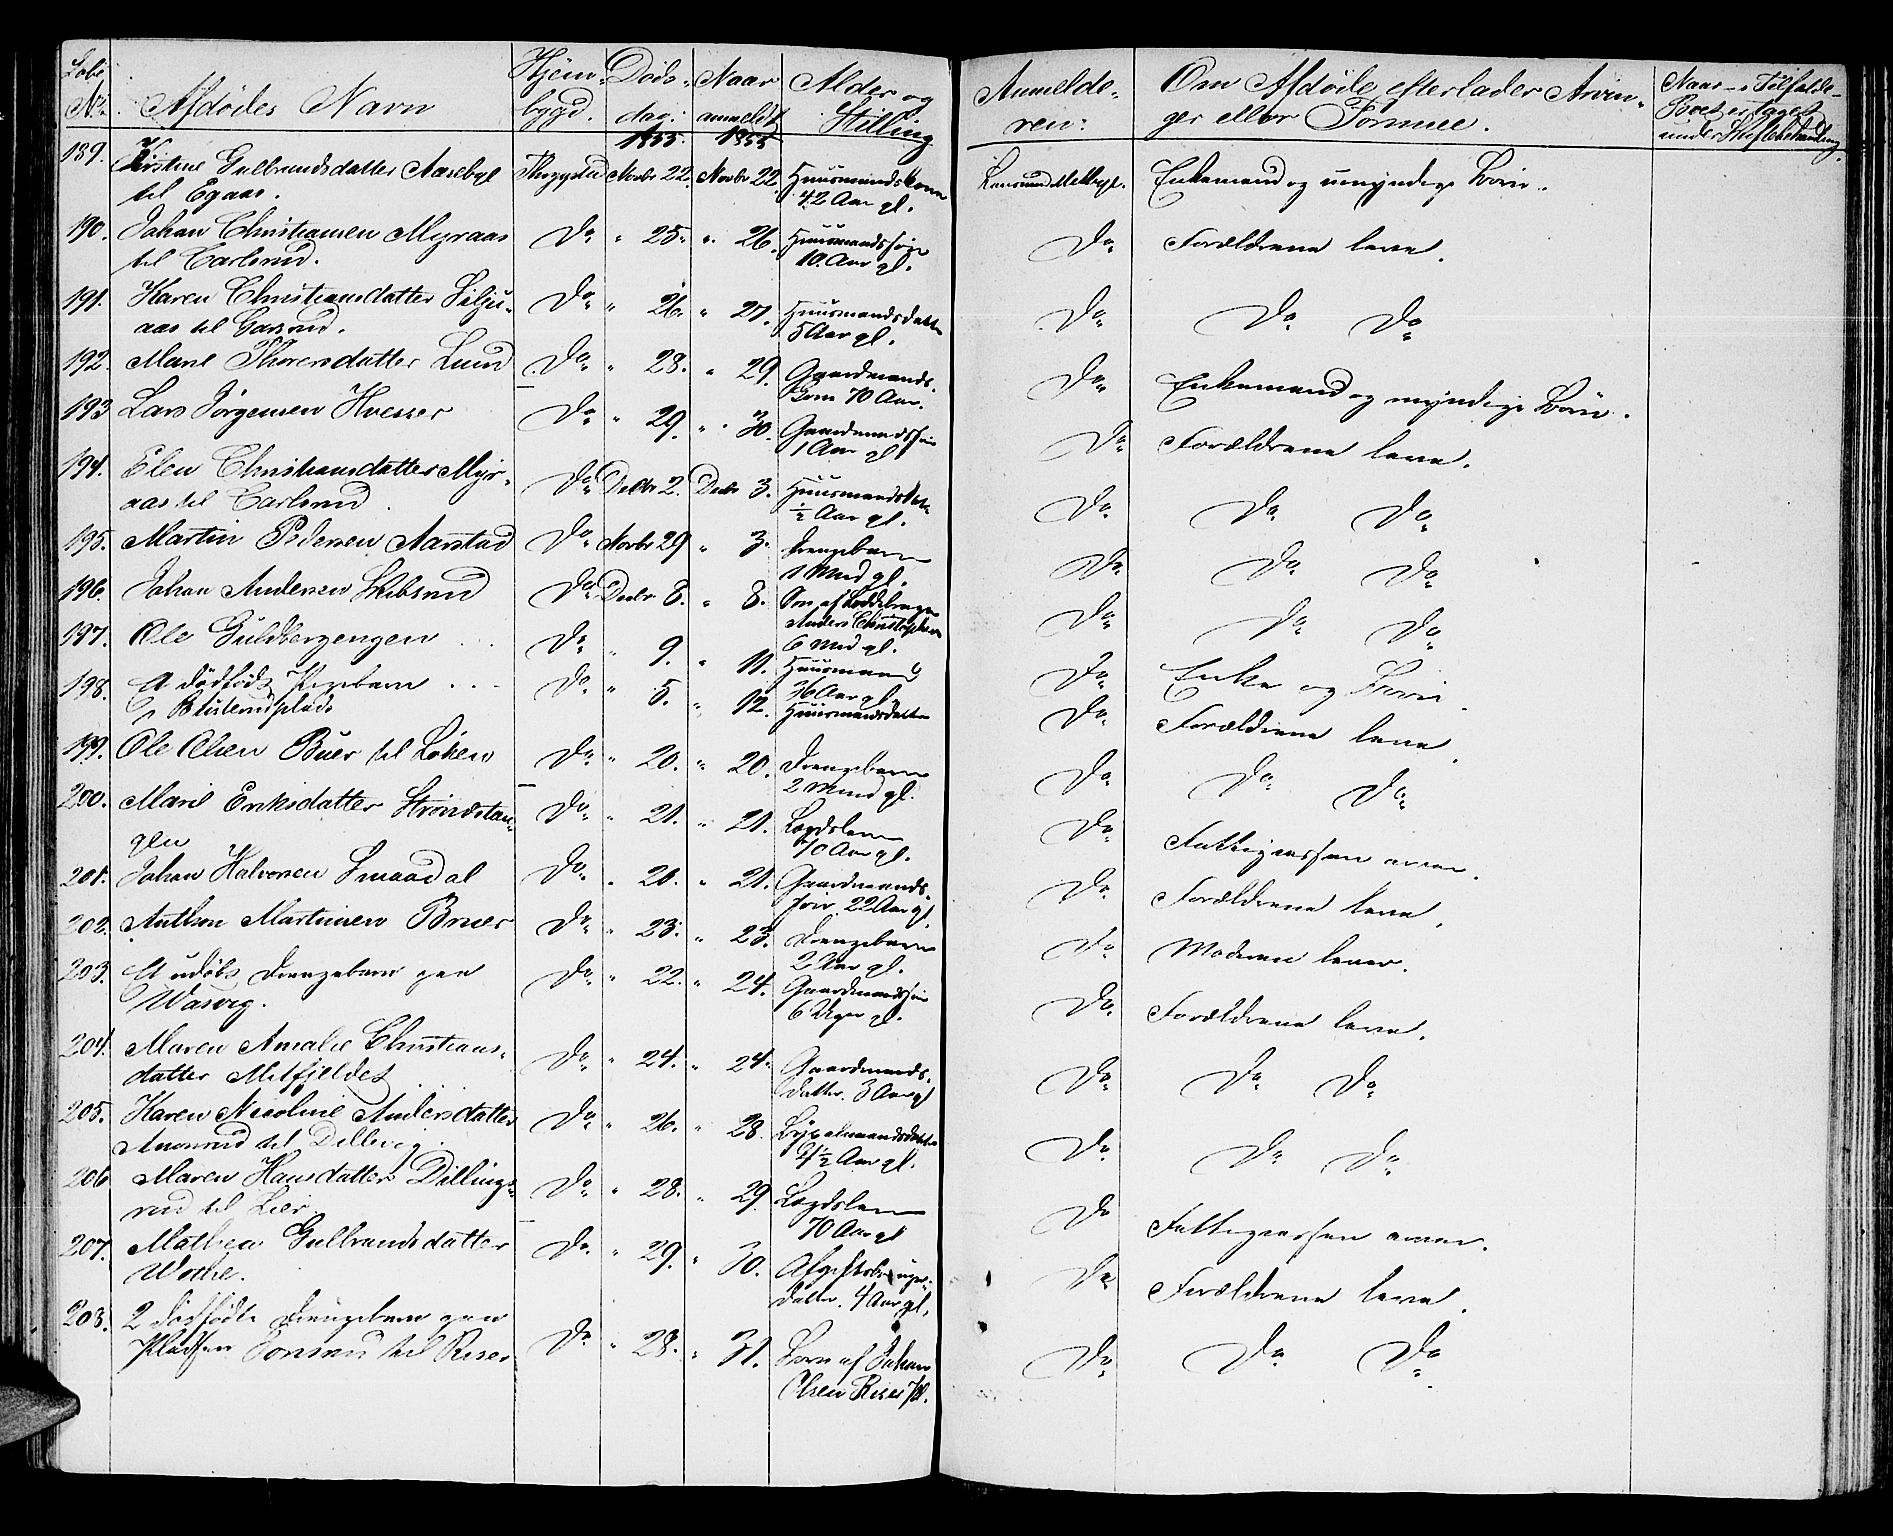 Løbe Nr. Afdødes Navn Hjem- bygd. Døds- dag. Naar anmeldt Alder og Stilling Anmelde- ren: Om Afdøde efterlader Arvin- ger eller Formue. Naar i Tilfælde Boet er taget under Skiftebehandling.
1855. 1855
189. Kirstine Gulbrandsdatter Aasebyl Thrygstad Novbr 22. Novbr 22. Huusmandskone Lensmand Melbye. Enkemand og umyndige Børn.
til Egaas. 42 Aar gl.
190. Johan Christiansen Myraas Do " 25. " 26. Huusmandssøn Do Forældrene leve.
til Carlsrud. 10 Aar gl.
191. Karen Christiansdatter Silju- Do " 26. " 27. Huusmandsdatter Do Do Do
aas til Garsrud. 5 Aar gl.
192. Marie Thoresdatter Lund Do " 28. " 29. Gaardmands- Do Enkemand og myndige Børn.
70 Aar.
193 Lars Jørgensen Kvesser Do " 29. " 30. Gaardmandssøn Do Forældrene leve.
1 Aar gl
194. Elen Christiansdatter Myr- Do Decbr 2. Decbr 3. Huusmandsdatter Do Do Do
aas til Carlsrud. ½ Aar gl.
195. Martin Pedersen Aarstad Do Novbr 29 " 3. Drengebarn Do Do Do
1 Mnd gl.
196. Johan Andersen Skibsrud Do Decbr 8. " 8. Søn af Anders Christophersen Do Do Do
6 Mnd gl.
197. Ole Guldbergengen Do " 9. " 11. Huusmand Do Enke og Børn.
36 Aar gl.
198. Et dødfødt Pigebarn Do " 5. " 12. Huusmandsdatter Do Forældrene leve.
199. Ole Olsen Buer til Løken Do " 20. " 20. Drengebarn Do Do Do
2 Mnd gl.
200. Marie Eriksdatter Strøndstan- Do " 21. " 21. Lægdslem Do Fattigcassen arver.
gen 70 Aar gl.
201. Johan Halvorsen Smaadal Do " 20. " 21. Gaardmands- Do Forældrene leve.
søn 22 Aar gl
202. Anthon Martinsen Bruer Do " 23. " 23. Drengebarn Do Moderen lever.
2 Aar gl.
203. Et udøbt Drengebarn paa Do " 22. " 24. Gaardmandssøn Do Forældrene leve.
Wasvig. 6 Uger gl.
204. Maren Amalie Christians- Do " 24. " 24. Gaardmands- Do Do Do
datter Mitfjeldet datter. 3 Aar gl
205. Karen Nicoline Andersdatter Do " 26. " 28. Do Do Do
til Dillevig. Aar gl.
206 Maren Hansdatter Dillings- Do " 28. " 29. Lægdslem Do Fattigcassen arver.
rud til Lier. 70 Aar gl
207. Mathea Gulbrandsdatter Do " 29. " 30. Do Forældrene leve.
Wothe. datter. 4 Aar gl.
208. 2 dødfødte Drengebarn paa Do " 28. " 31. Børn af Johan Do Do Do
Pladsen til Riser Olsen Riser Pl.